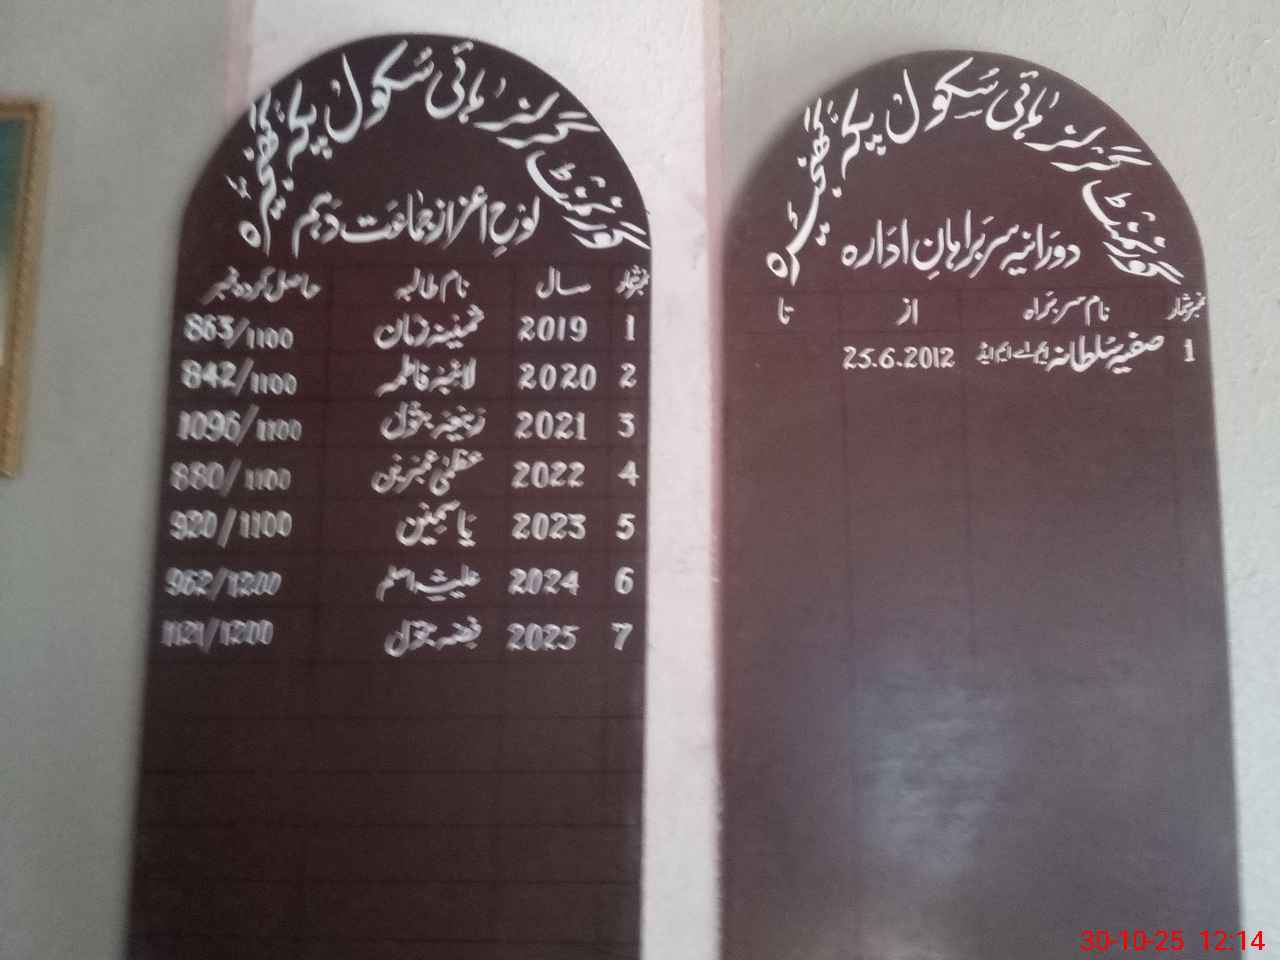 گورنمنٹ گرلز ہائی سکول پکہ گھنجیرہ
لوح اعزاز جماعت دہم
نمبر شمار سال نام طالبہ حاصل کردہ نمبر
1 2019 ثمینہ زمان 863/1100
2 2020 لائبہ فاطمہ 842/1100
3 2021 زینب بتول 1096/1100
4 2022 عظمیٰ عنبرین 880/1100
5 2023 یاسمین 920/1100
6 2024 علیشہ اسلم 962/1200
7 2025 فضہ بتول 1121/1200
گورنمنٹ گرلز ہائی سکول پکہ گھنجیرہ
دورانیہ سربراہان ادارہ
نمبر شمار نام سربراہ از تا
1 صفیہ سلطانہ ایم اے ایم ایڈ 25.6.2012
30-10-25 12:14